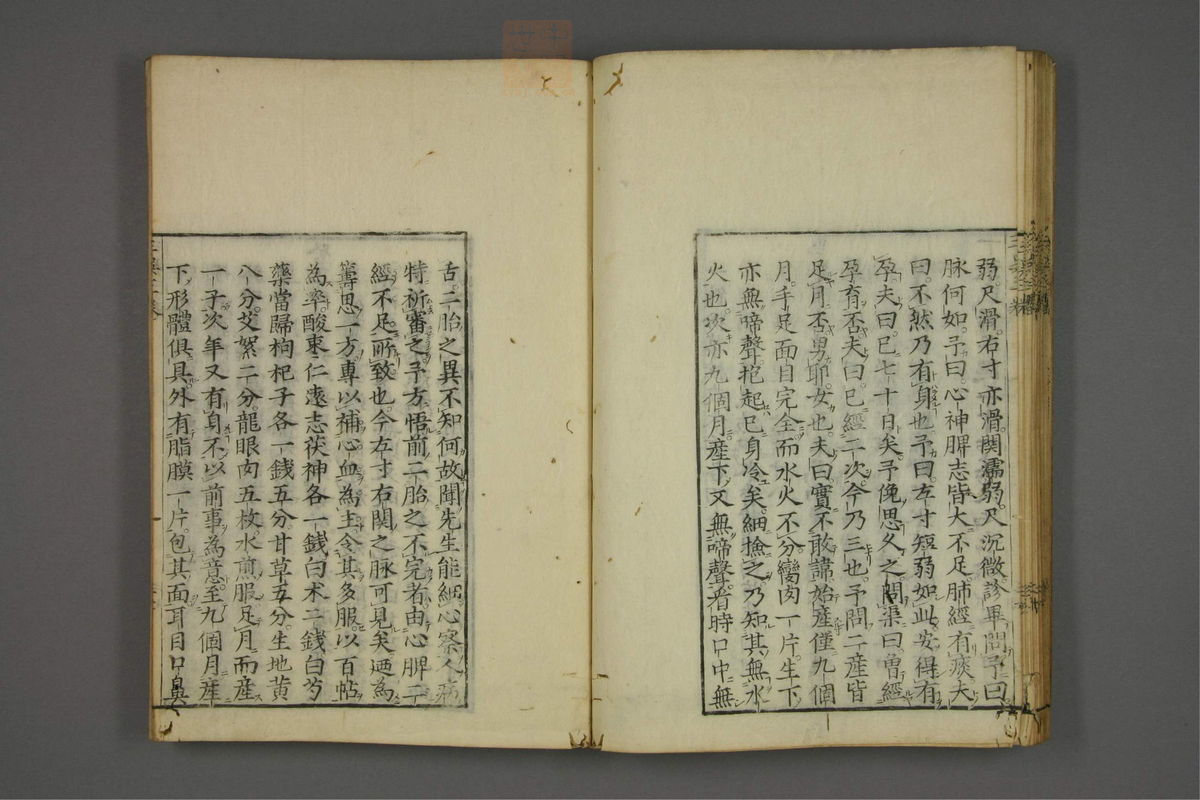 弱尺滑右寸亦滑関濡弱尺沉微診畢問予曰
脉何如予曰心神脾志皆大不足肺經有痰夫
曰不然乃有身也予曰左寸短弱如此安得有
孕夫曰已七十日矣予俛思久之問渠曰曽經
孕有否夫曰已經二次今乃三也予問二産皆
足月否男耶女也夫曰實不敢諱始産僅九個
月手足面目完全而水火不分臠肉一片生下
亦無啼聲抱起已身冷矣細撿之乃知其無水
火也次亦九個月産下又無啼聲看時口中無
舌二胎之異不知何故聞先生能細心察人病
特祈審之予方悟前二胎之不完者由心脾二
經不足所致也今左寸右関之脉可見矣廼為
籌思一方專以補心血為主令其多服以百帖
為率酸棗仁遠志茯神各一錢白术二錢白芍
藥當歸枸杞子各一錢五分甘草五分生地黄
八分艾絮二分龍眼肉五枚水煎服足月而産
一子次年又有身不以前事為意至九個月産
下形體俱具外有脂膜一片包其面耳目口鼻